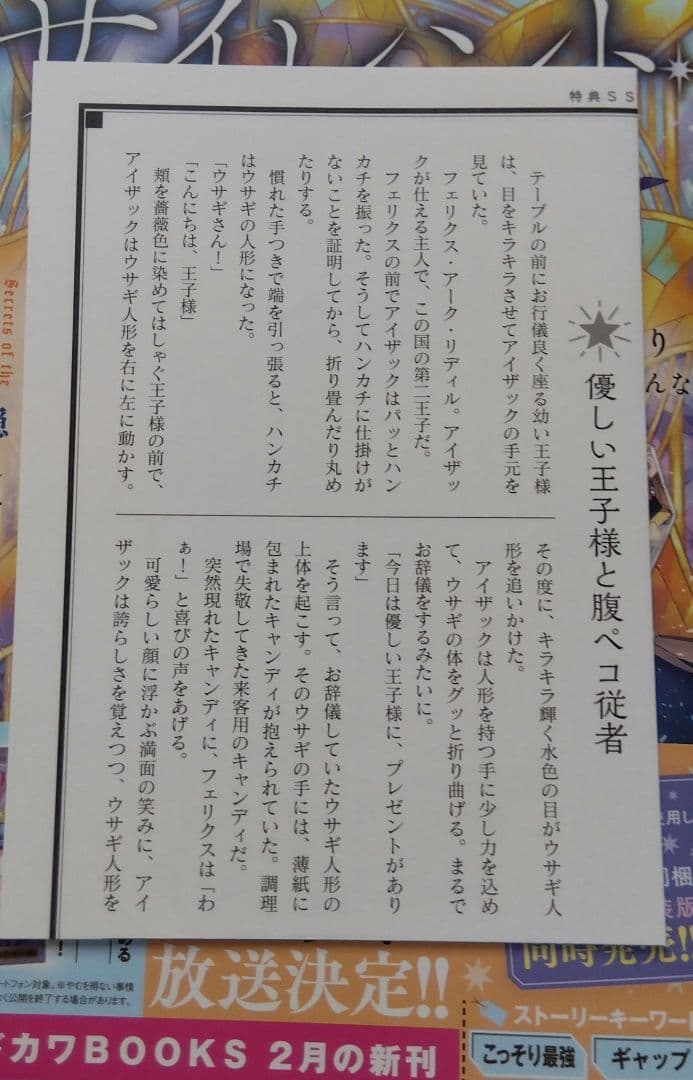 サイレント・
特典SS
優しい王子様と腹ペコ従者
テーブルの前にお行儀良く座る幼い王子様
は、目をキラキラさせてアイザックの手元を
見ていた。
フェリクス・アーク・リディル。アイザッ
クが仕える主人で、この国の第二王子だ。
フェリクスの前でアイザックはパッとハン
カチを振った。そうしてハンカチに仕掛けが
ないことを証明してから、折り畳んだり丸め
たりする。
慣れた手つきで端を引っ張ると、ハンカチ
はウサギの人形になった。
「ウサギさん！」
「こんにちは、王子様」
頬を薔薇色に染めてはしゃぐ王子様の前で、
アイザックはウサギ人形を右に左に動かす。
その度に、キラキラ輝く水色の目がウサギ人
形を追いかけた。
アイザックは人形を持つ手に少し力を込め
て、ウサギの体をグッと折り曲げる。まるで
お辞儀をするみたいに。
「今日は優しい王子様に、プレゼントがあり
ます」
そう言って、お辞儀していたウサギ人形の
上体を起こす。そのウサギの手には、薄紙に
包まれたキャンディが抱えられていた。調理
場で失敬してきた来客用のキャンディだ。
突然現れたキャンディに、フェリクスは「わ
ぁ！」と喜びの声をあげる。
可愛らしい顔に浮かぶ満面の笑みに、アイ
ザックは誇らしさを覚えつつ、ウサギ人形を
Secrets of the
り
んな
使用し
同梱
装版
同時発売!!
ある
ートフォン対象。※やむを得ない事情
なく公開を終了する場合があります。
放送決定!!
ドカワBOOKS 2月の新刊
ストーリーキーワード
こっそり最強
ギャップ